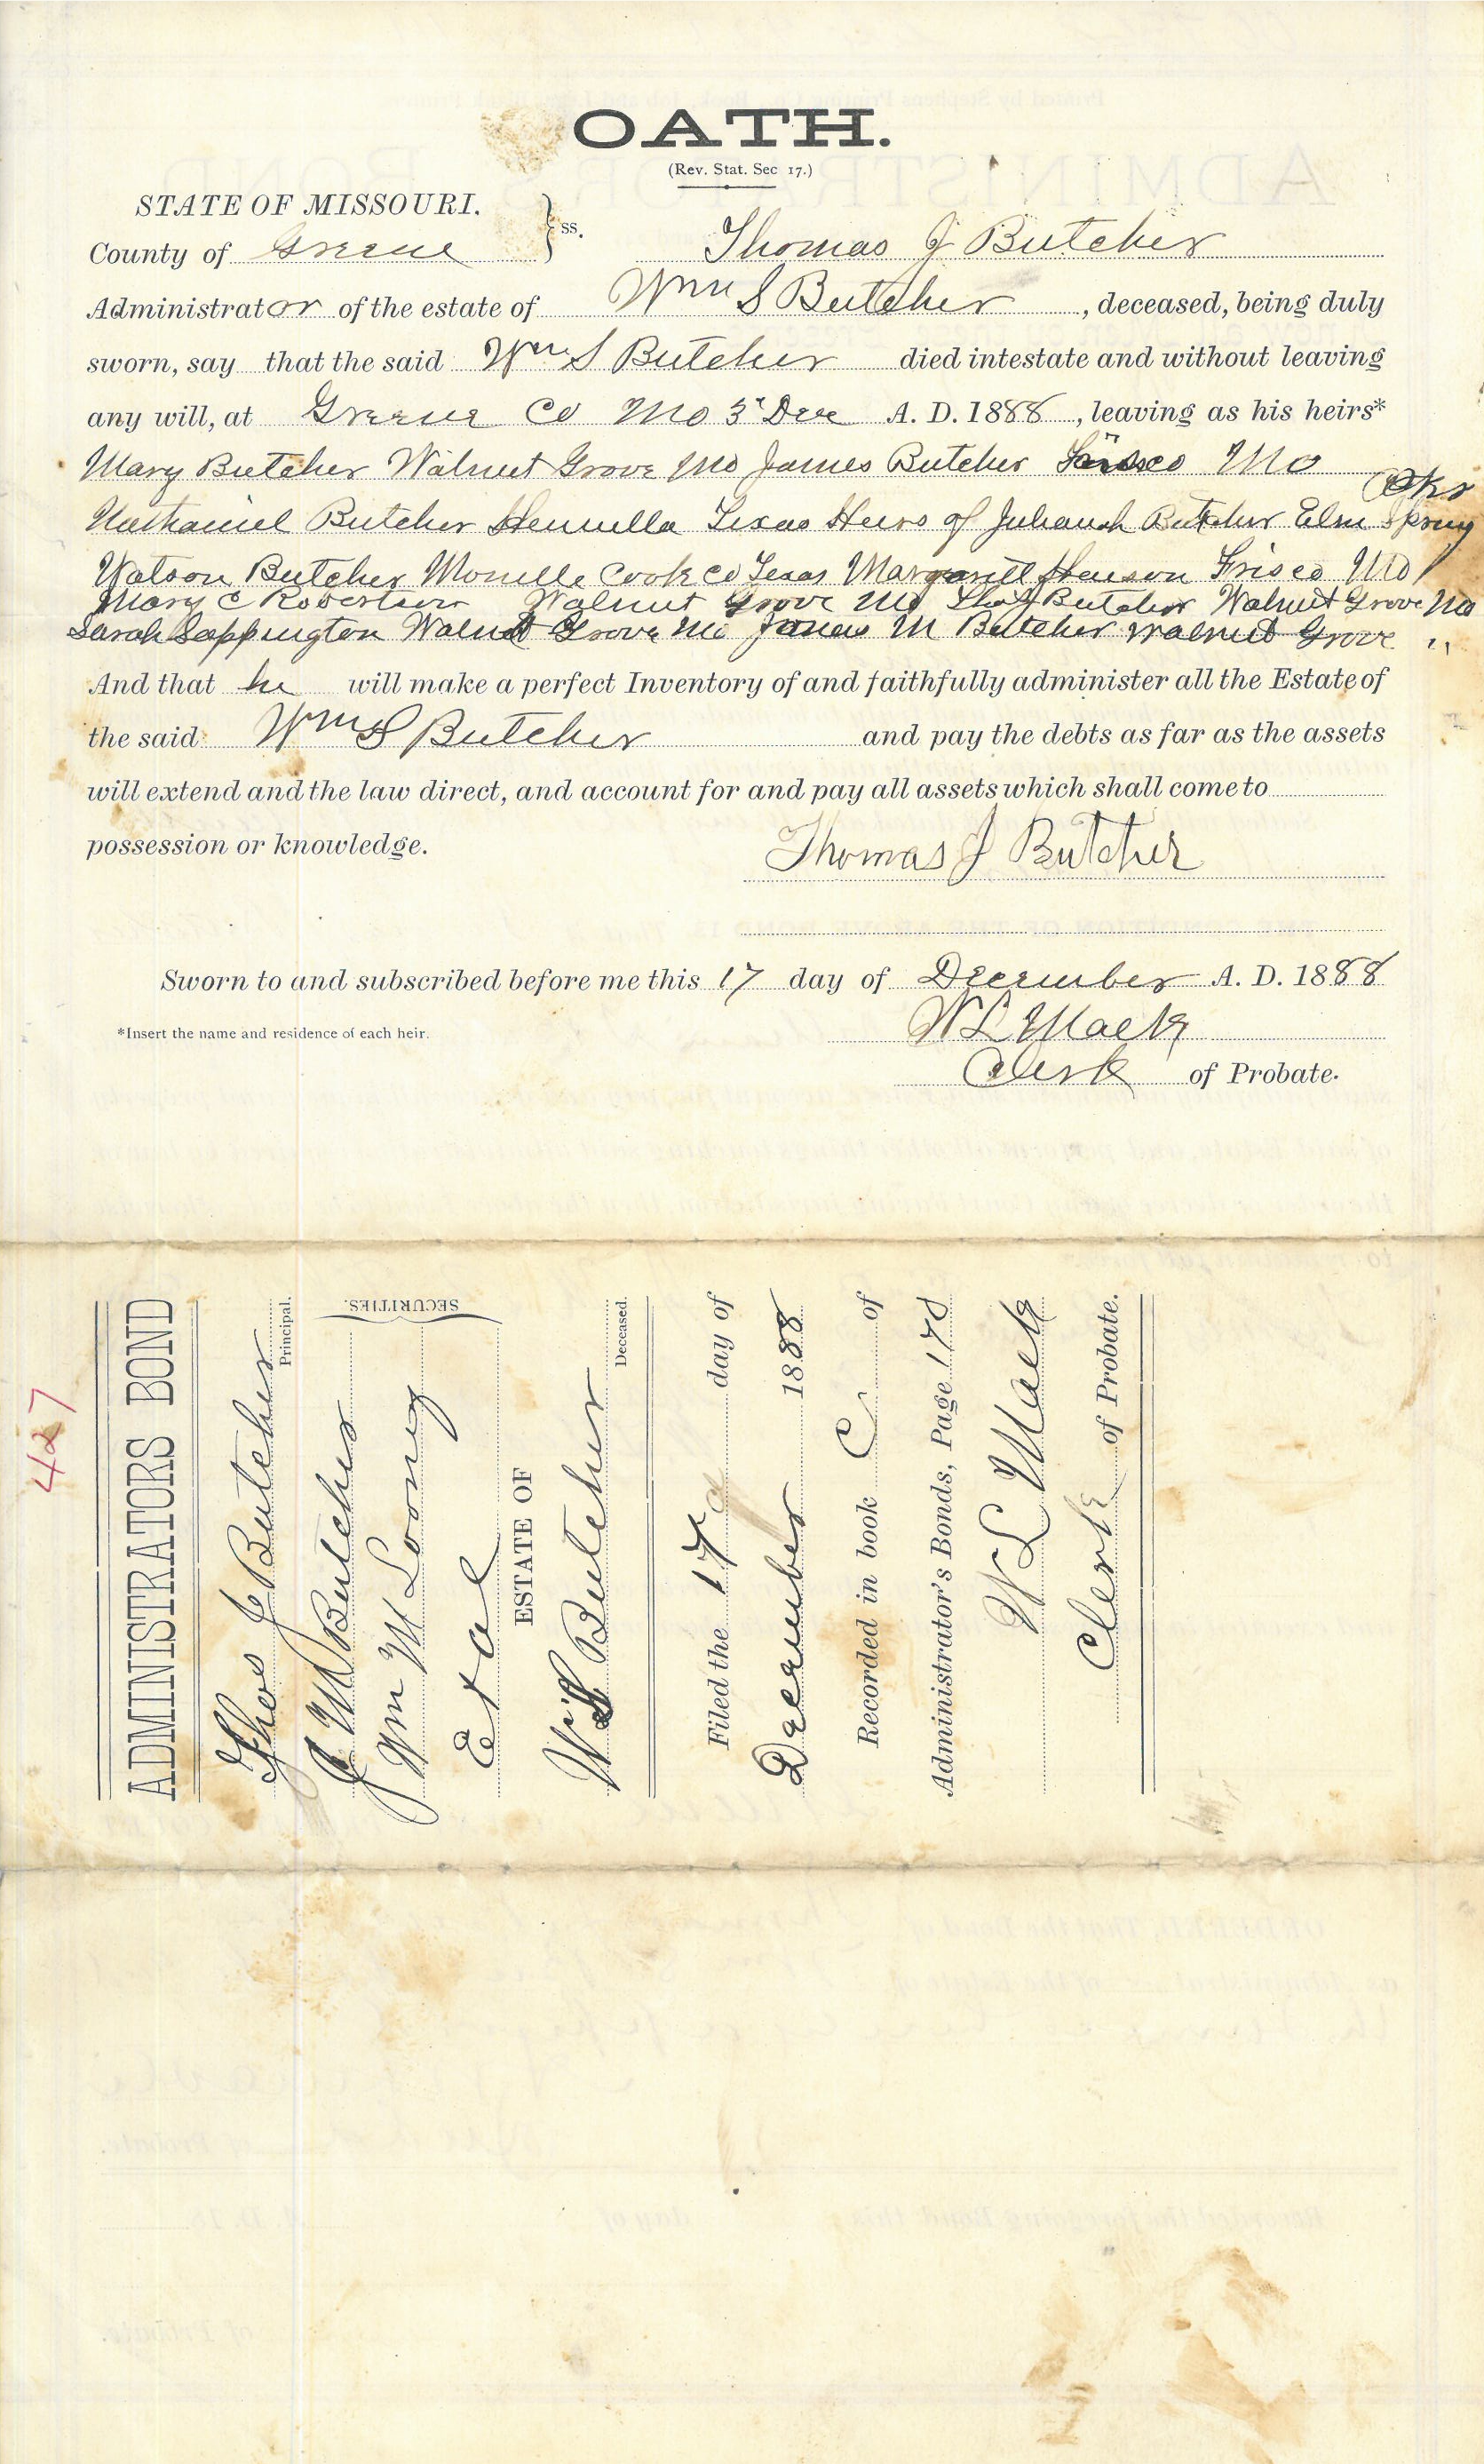 OATH.
(Rev. Stat. Sec 17.)
STATE OF MISSOURI.
County of Greene } ss. Thomas J Butcher
Administrator of the estate of Wm S Butcher, deceased, being duly
sworn, say that the said Wm S Butcher died intestate and without leaving
any will, at Greene Co Mo 3" Dec A. D. 1888, leaving as his heirs*
Mary Butcher Walnut Grove Mo James Butcher Frisco Mo
Nathaniel Butcher Texas Heirs of Butcher Elm Spring
Watson Butcher Cook co Texas Henson Frisco Mo
Mary C Robertson Walnut Grove Mo Thos J Butcher Walnut Grove Mo
Sarah Sappington Walnut Grove Mo James M Butcher Walnut Grove "
And that he will make a perfect Inventory of and faithfully administer all the Estate of
the said Wm S Butcher and pay the debts as far as the assets
will extend and the law direct, and account for and pay all assets which shall come to
possession or knowledge.
Thomas J Butcher
Sworn to and subscribed before me this 17 day of December A. D. 1888
*Insert the name and residence of each heir.
W L Mack
Clerk of Probate.
427
ADMINISTRATORS BOND
Thos J Butcher
Principal.
J M Butcher
Wm M Looney
Et al
SECURITIES.
ESTATE OF
W S Butcher
Deceased.
Filed the 17 day of
December 1888
Recorded in book C of
Administrator's Bonds, Page 178
W L Mack
Clerk of Probate.